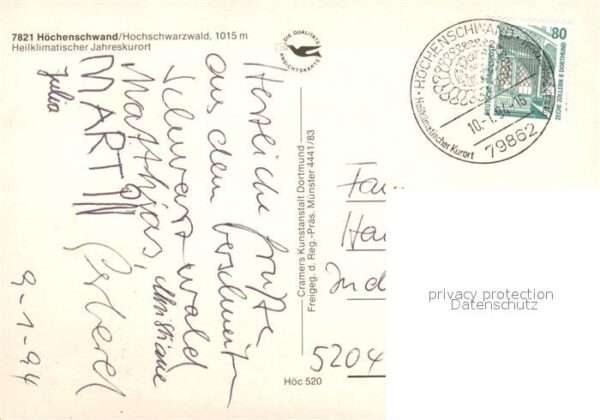 7821 Höchenschwand/Hochschwarzwald, 1015 m
Heilklimatischer Jahreskurort
DIE QUALITÄTS
ANSICHTSKARTE
HÖCHENSCHWAND
Heilklimatischer Kurort
10.-1.
79862
80
DEUTSCHE BUNDESPOST
ZECHE ZOLLERN II DORTMUND
Herzliche Grüße
aus dem verschneit
Schwarzwald
Matthias, Christiane
MARTIN
Julia
9-1-94
Cramers Kunstanstalt Dortmund
Freigeg. d. Reg.-Präs. Münster 4441/83
Höc 520
Fa
Ha
Ind
5204
privacy protection
Datenschutz